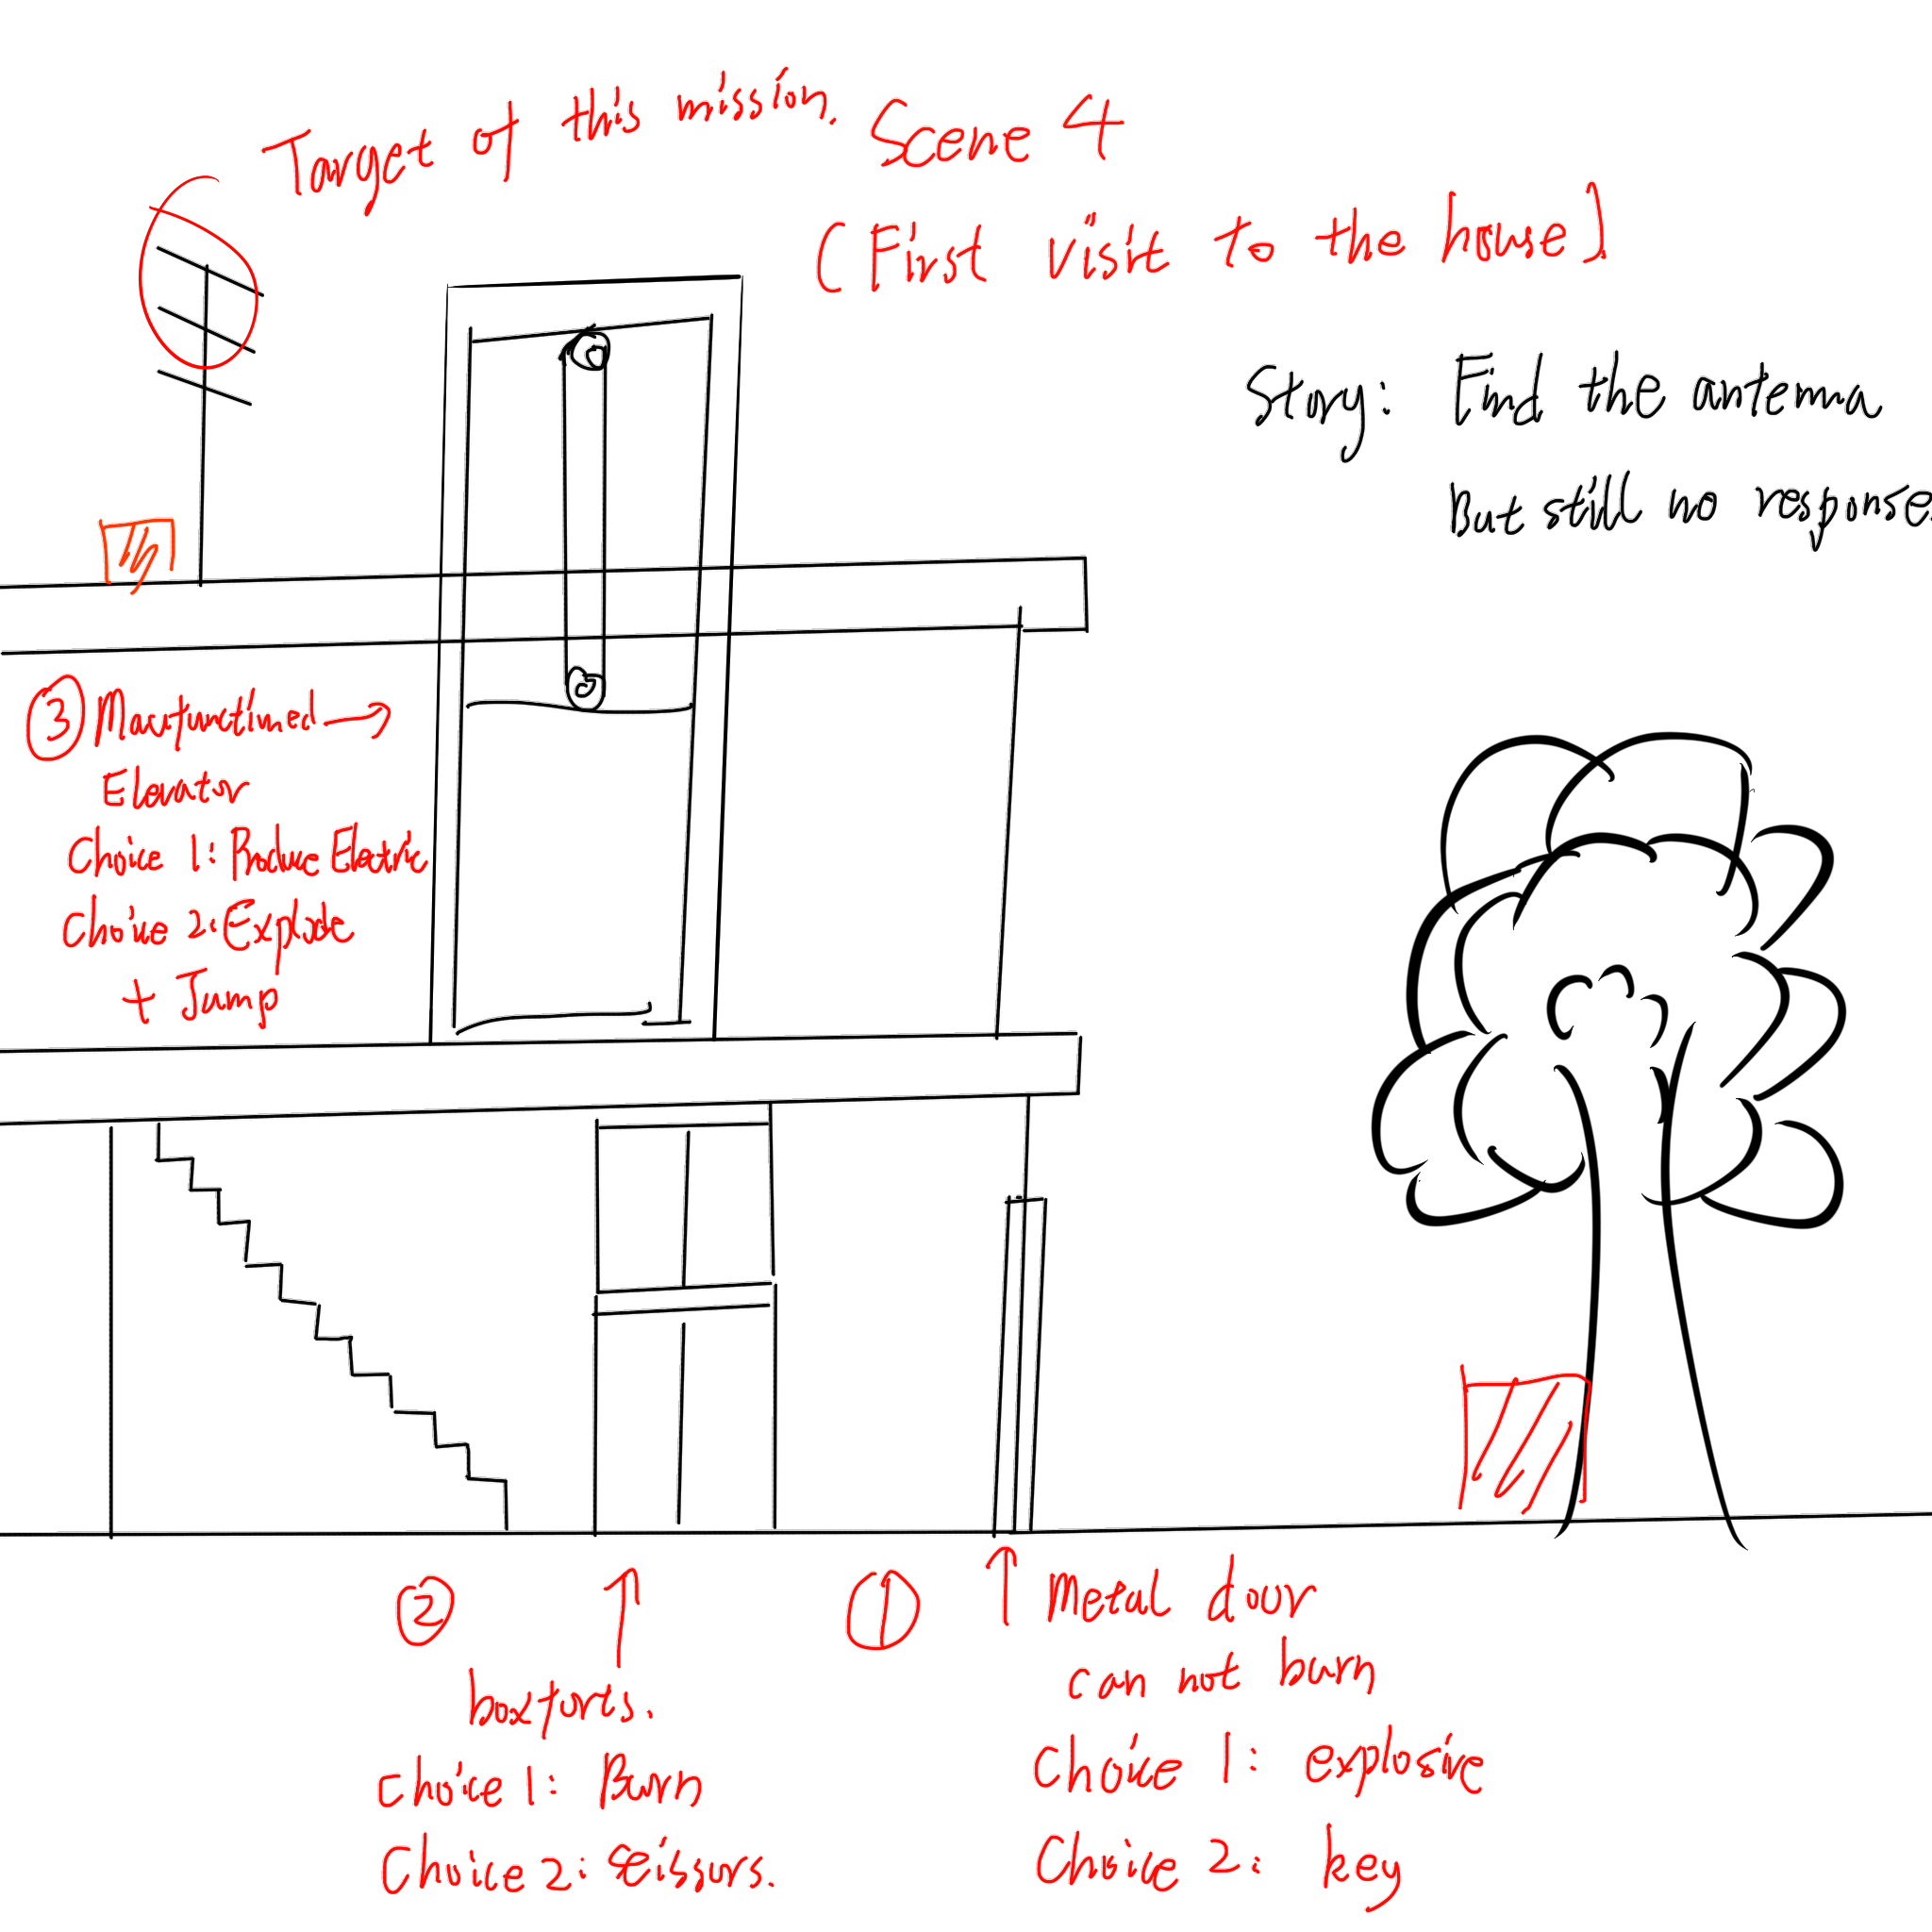 Target of this mission.
Scene 4
(First visit to the house).
Story: Find the antenna
But still no response.
③ Maufunctioned →
Elevator
Choice 1: Produce Electric
Choice 2: Explode
+ Jump
②
boxforts.
Choice 1: Burn
Choice 2: Scissors.
①
Metal door
can not burn
Choice 1: explosive
Choice 2: key